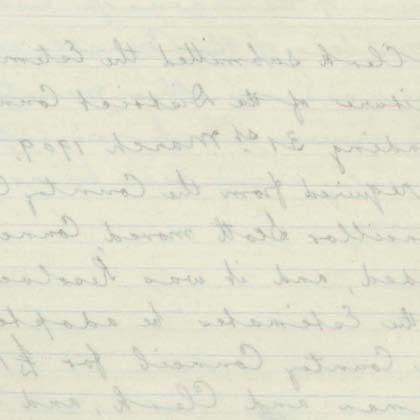 Clerk submitted the Estim
iture of the District Coun
nding 31st. March 1909.
required from the County C
ncillor Scott moved, Conne
ded, and it was Resolve
the Estimates be adopte
County Council for £1
man and Clerk, and